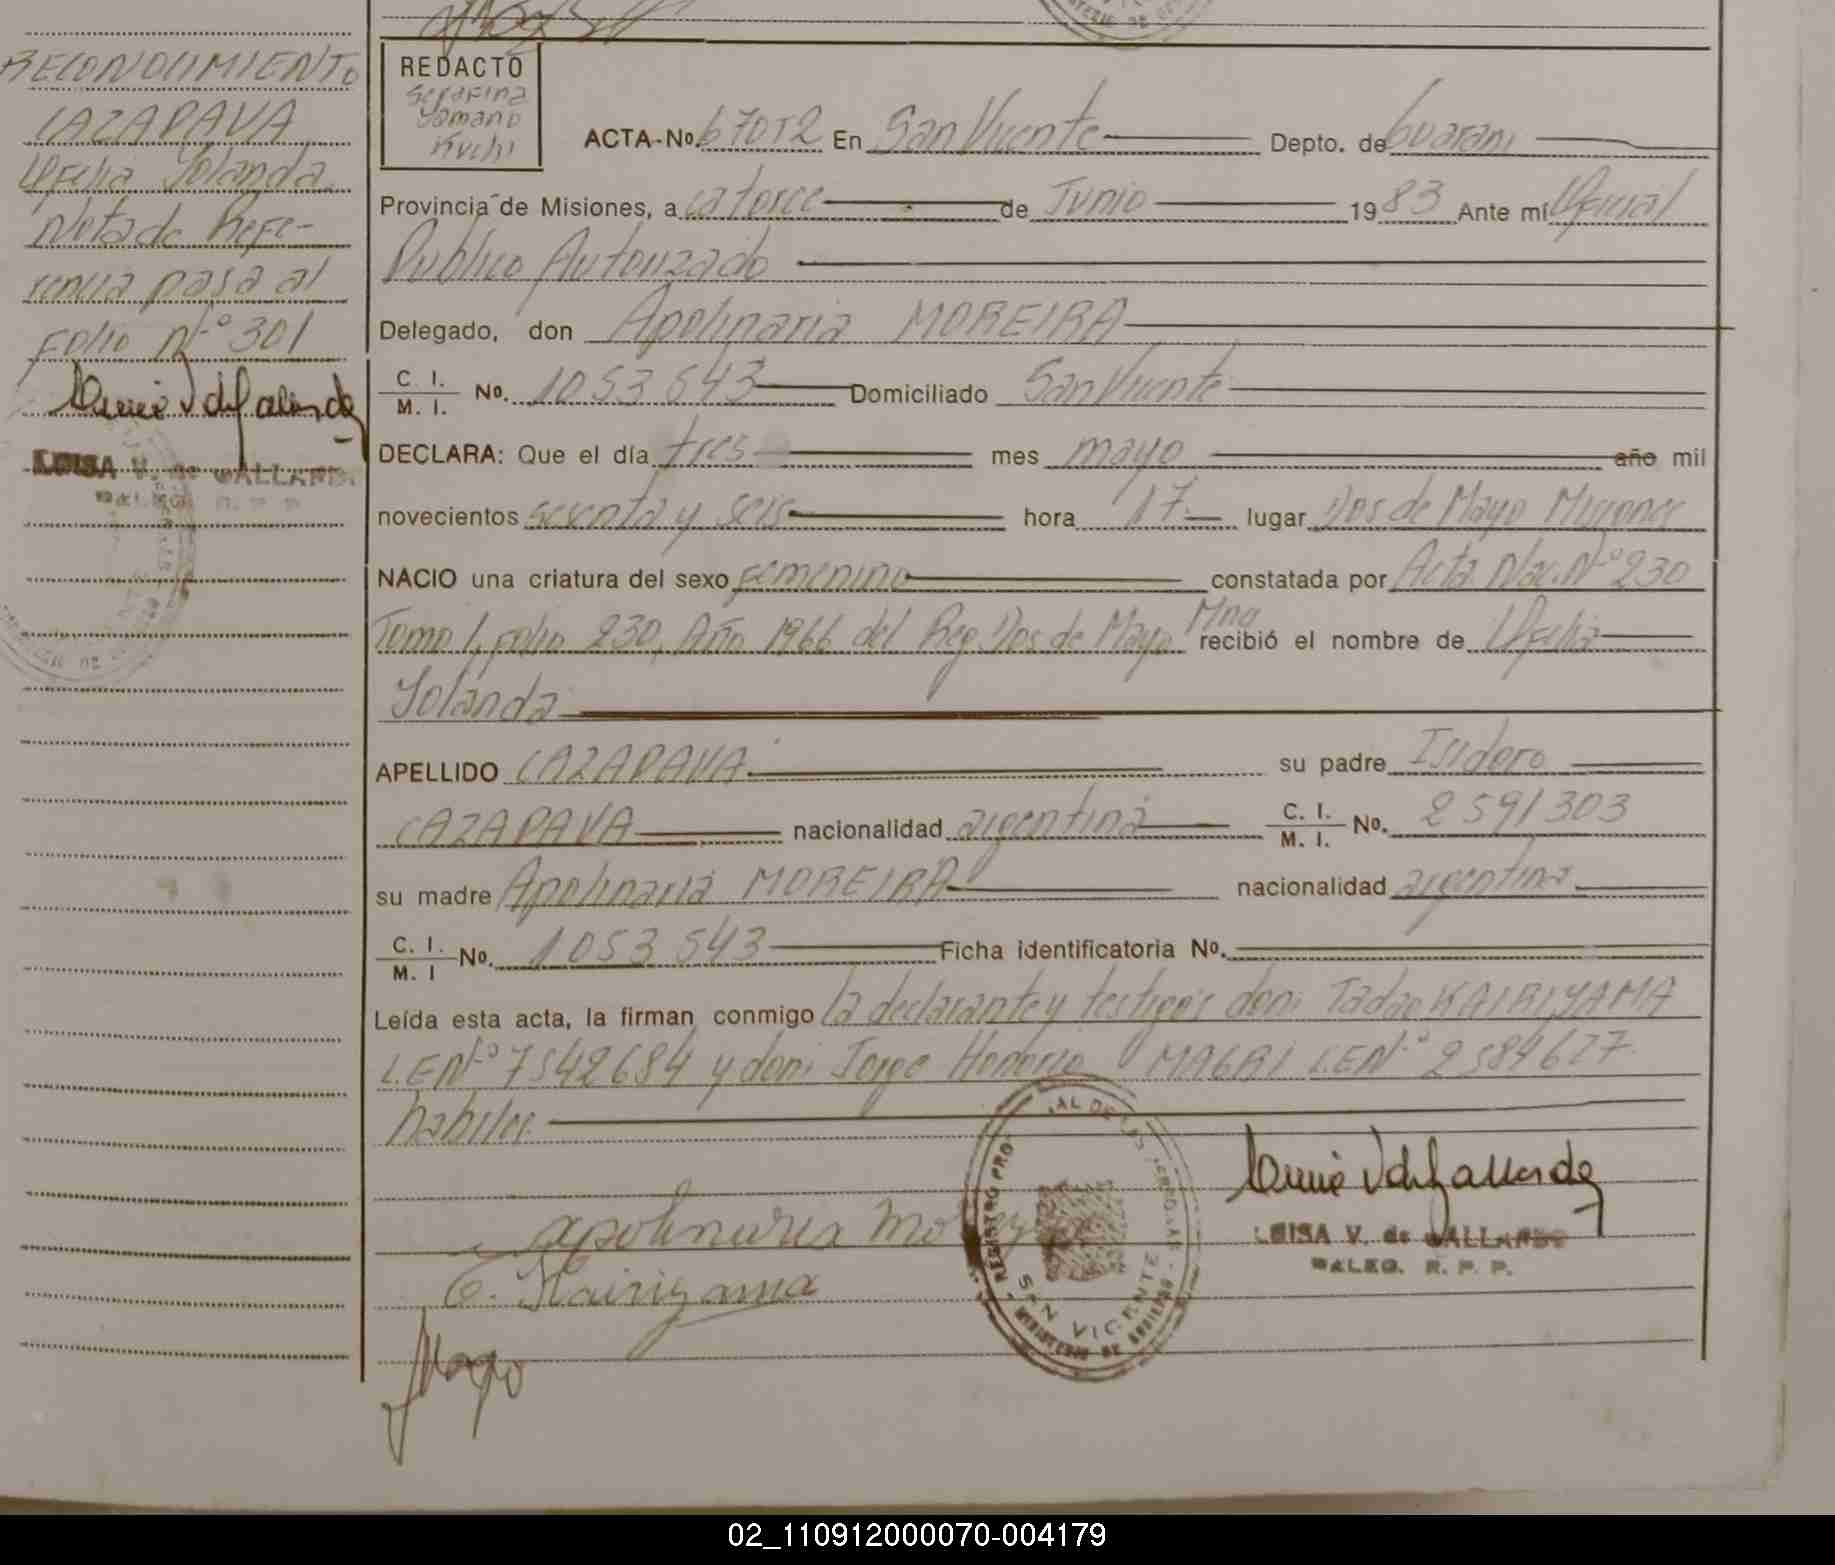 RECONOCIMIENTO
CAZAPAVA
Ofelia Yolanda.
Nota de Refe-
rencia pasa al
Folio Nº 301
LUISA V. de GALLARDO
DELEG. R. P. P.
REDACTO
Serafina
Romano
Kuchi
ACTA-No. 67012 En San Vicente Depto. de Guarani
Provincia de Misiones, a catorce de Junio 1983 Ante mí Oficial
Publico Autorizado
Delegado, don Apolinaria MOREIRA
C. I.
M. I. No. 1053543 Domiciliado San Vicente
DECLARA: Que el día tres mes mayo año mil
novecientos sesenta y seis hora 17.- lugar Dos de Mayo Misiones
NACIO una criatura del sexo femenino constatada por Acta Nac. Nº 230
Tomo 1, Folio 230, Año 1966 del Reg. Dos de Mayo Mnes recibió el nombre de Ofelia
Yolanda
APELLIDO CAZAPAVA su padre Isidoro
CAZAPAVA nacionalidad argentina C. I.
M. I. No. 2591303
su madre Apolinaria MOREIRA nacionalidad argentina
C. I.
M. I No. 1053543 Ficha identificatoria No.
Leída esta acta, la firman conmigo la declarante y testigos don: Tadao KAIRIYAMA
L.E Nº 7542684 y don: Jorge Honorio MAGRI L.E Nº 2584627.
habiles
Apolinaria Moreyra
T. Kairiyama
REGISTRO PROVINCIAL DE LAS PERSONAS
SAN VICENTE
MINISTERIO DE GOBIERNO
LUISA V. de GALLARDO
DALEG. R. P. P.
02_110912000070-004179